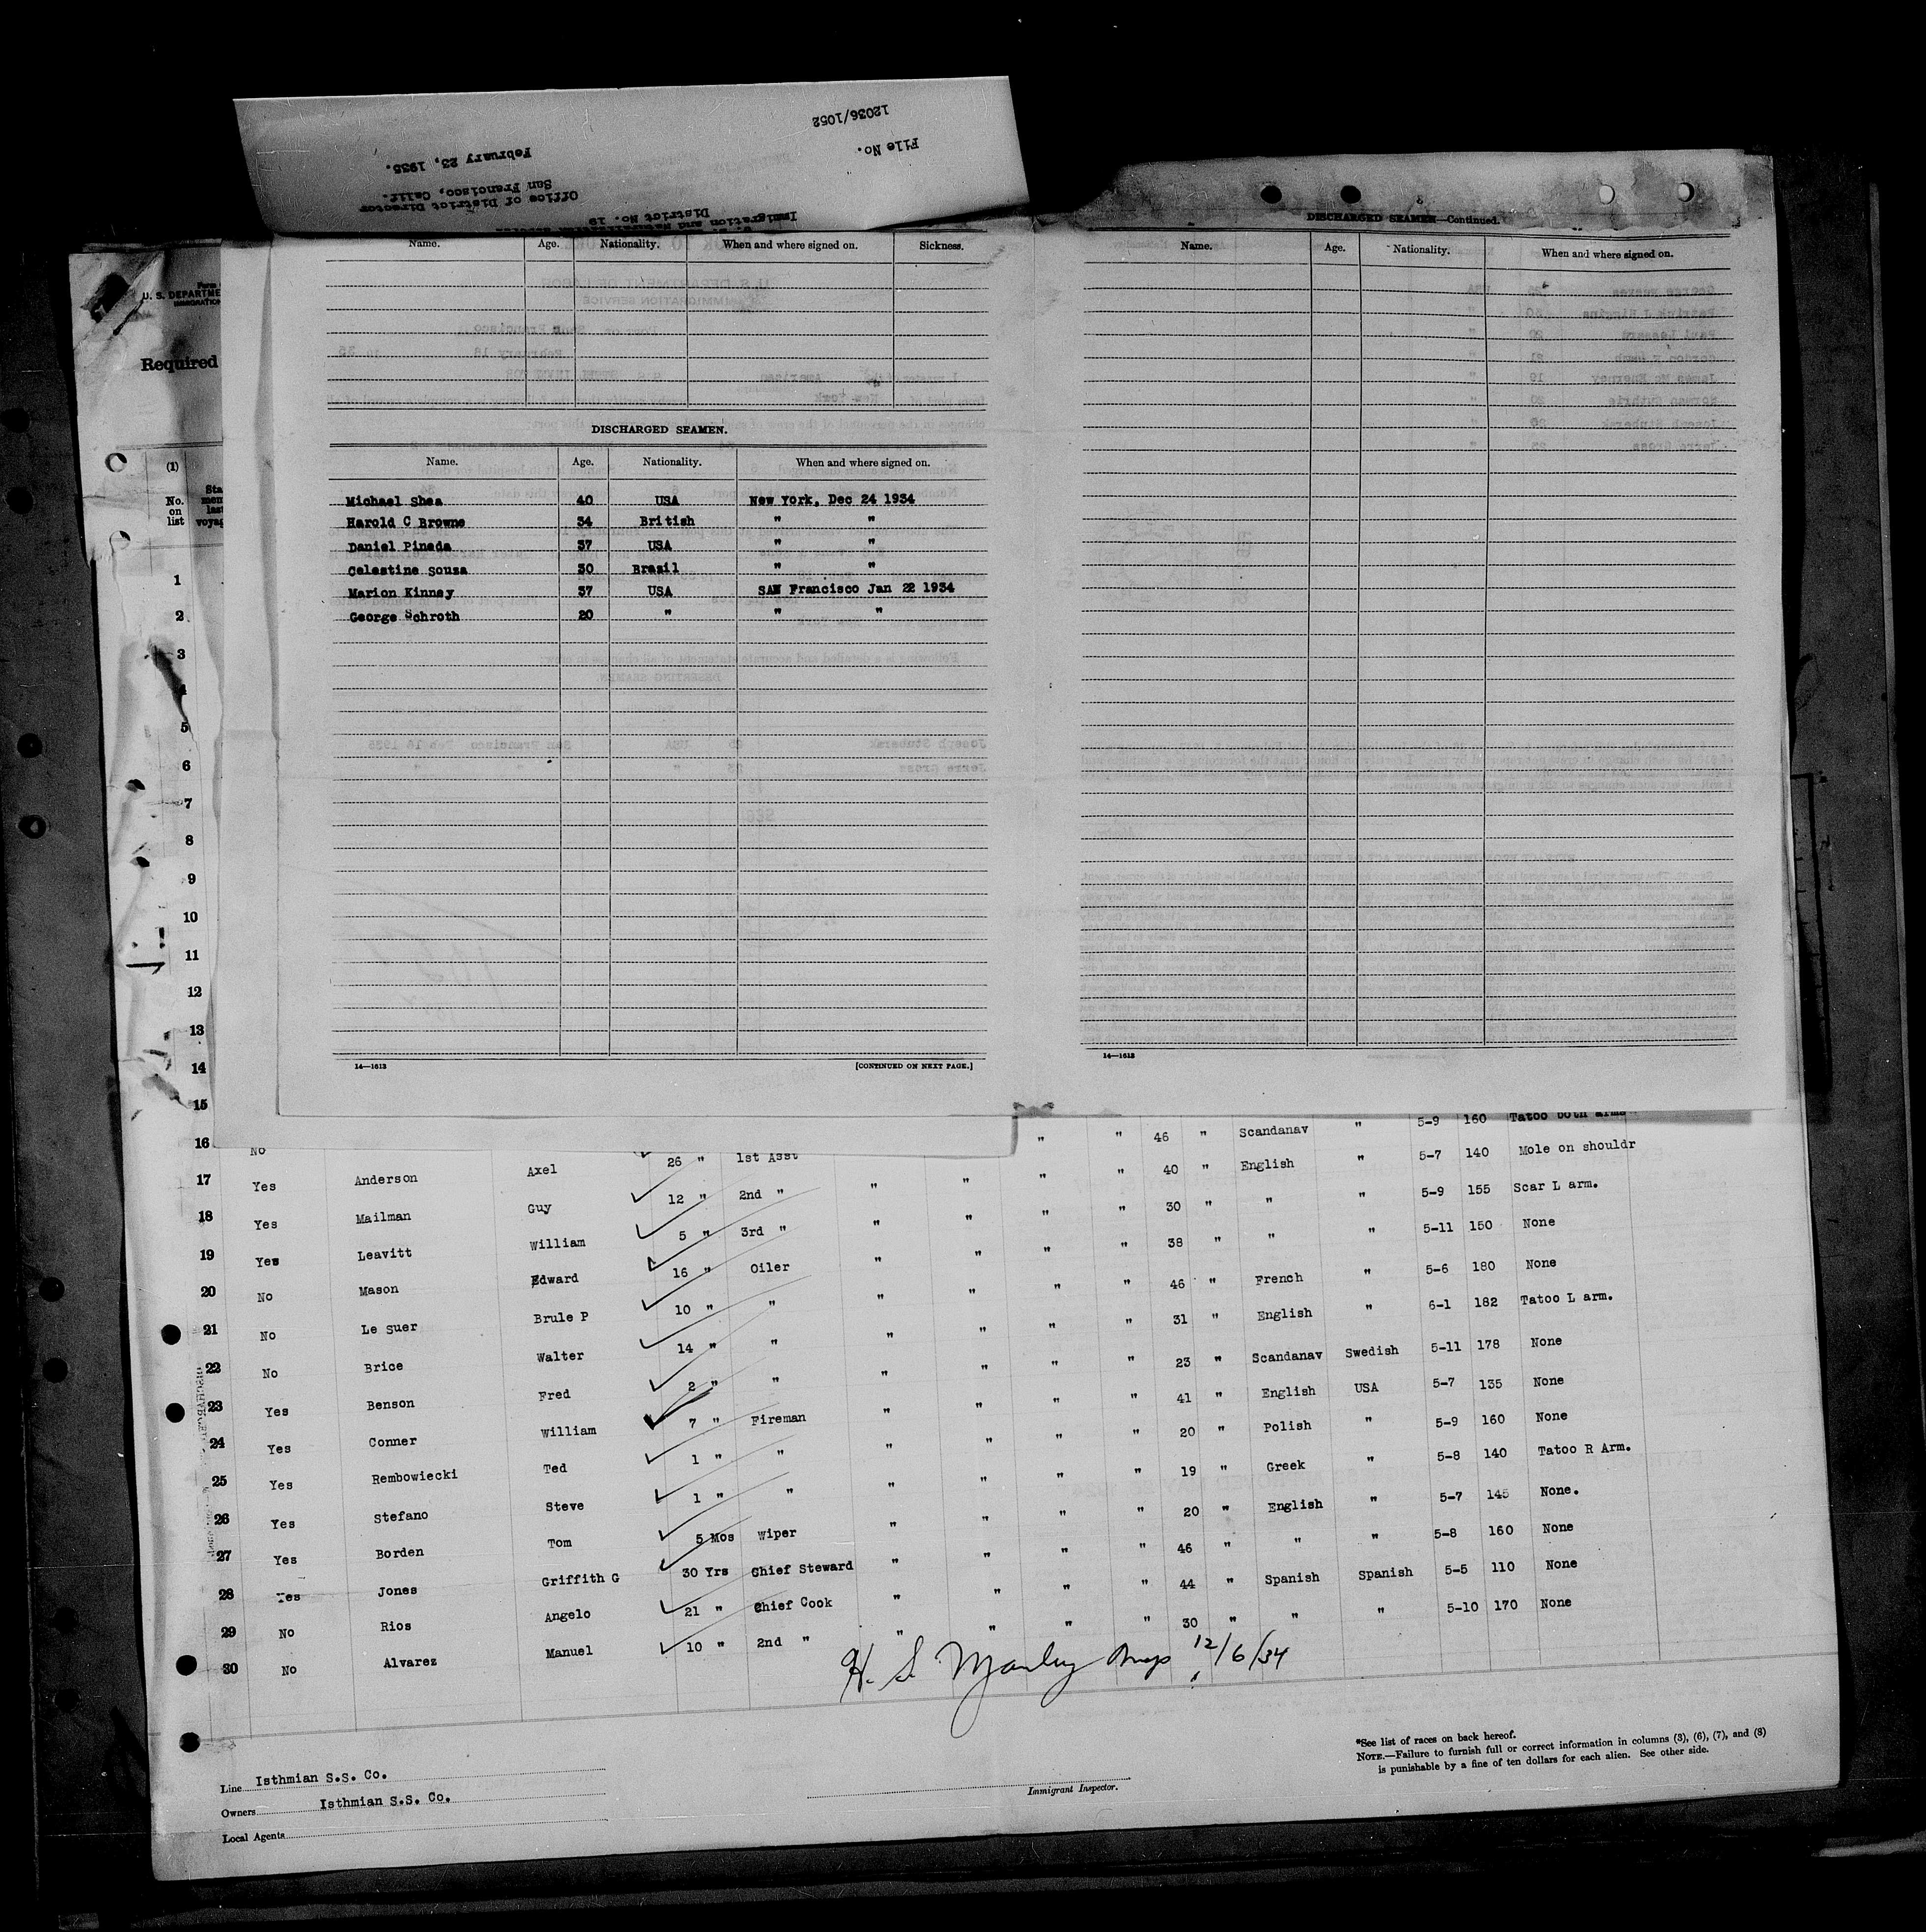 File No.
12036/1052
Immigration and Naturalization Service
District No. 19
Office of District Director
San Francisco, Calif.
February 23, 1935.
Name. Age. Nationality. When and where signed on. Sickness.
DISCHARGED SEAMEN.
Name. Age. Nationality. When and where signed on.
Michael Shea 40 USA New York, Dec 24 1934
Harold C Browne 34 British " "
Daniel Pineda 37 USA " "
Celestine Sousa 30 Brazil " "
Marion Kinney 37 USA SAN Francisco Jan 22 1934
George Schroth 20 " " "
14—1613 [CONTINUED ON NEXT PAGE.]
DISCHARGED SEAMEN—Continued.
Name. Age. Nationality. When and where signed on.
14—1613
Form
U. S. DEPARTME
IMMIGRATION
Required
(1)
No. on list
Sta
men
last
voyag
1
2
3
4
5
6
7
8
9
10
11
12
13
14
15
16 No " " 46 " Scandanav " 5-9 160 Tatoo both arms
17 Yes Anderson Axel 26 " 1st Asst " " 40 " English " 5-7 140 Mole on shouldr
18 Yes Mailman Guy 12 " 2nd " " " " " 30 " " " 5-9 155 Scar L arm.
19 Yes Leavitt William 5 " 3rd " " " " " 38 " " " 5-11 150 None
20 No Mason Edward 16 " Oiler " " " " 46 " French " 5-6 180 None
21 No Le Suer Brule P 10 " " " " " " 31 " English " 6-1 182 Tatoo L arm.
22 No Brice Walter 14 " " " " " " 23 " Scandanav Swedish 5-11 178 None
23 Yes Benson Fred 2 " " " " " " 41 " English USA 5-7 135 None
24 Yes Conner William 7 " Fireman " " " " 20 " Polish " 5-9 160 None
25 Yes Rembowiecki Ted 1 " " " " " " 19 " Greek " 5-8 140 Tatoo R Arm.
26 Yes Stefano Steve 1 " " " " " " 20 " English " 5-7 145 None.
27 Yes Borden Tom 5 Mos Wiper " " " " 46 " " " 5-8 160 None
28 Yes Jones Griffith G 30 Yrs Chief Steward " " " " 44 " Spanish Spanish 5-5 110 None
29 No Rios Angelo 21 " Chief Cook " " " " 30 " " " 5-10 170 None
30 No Alvarez Manuel 10 " 2nd " " "
H. S. Manley Insp 12/6/34
Line Isthmian S.S. Co.
Owners Isthmian S.S. Co.
Local Agents
Immigrant Inspector.
*See list of races on back hereof.
NOTE.—Failure to furnish full or correct information in columns (3), (6), (7), and (8)
is punishable by a fine of ten dollars for each alien. See other side.